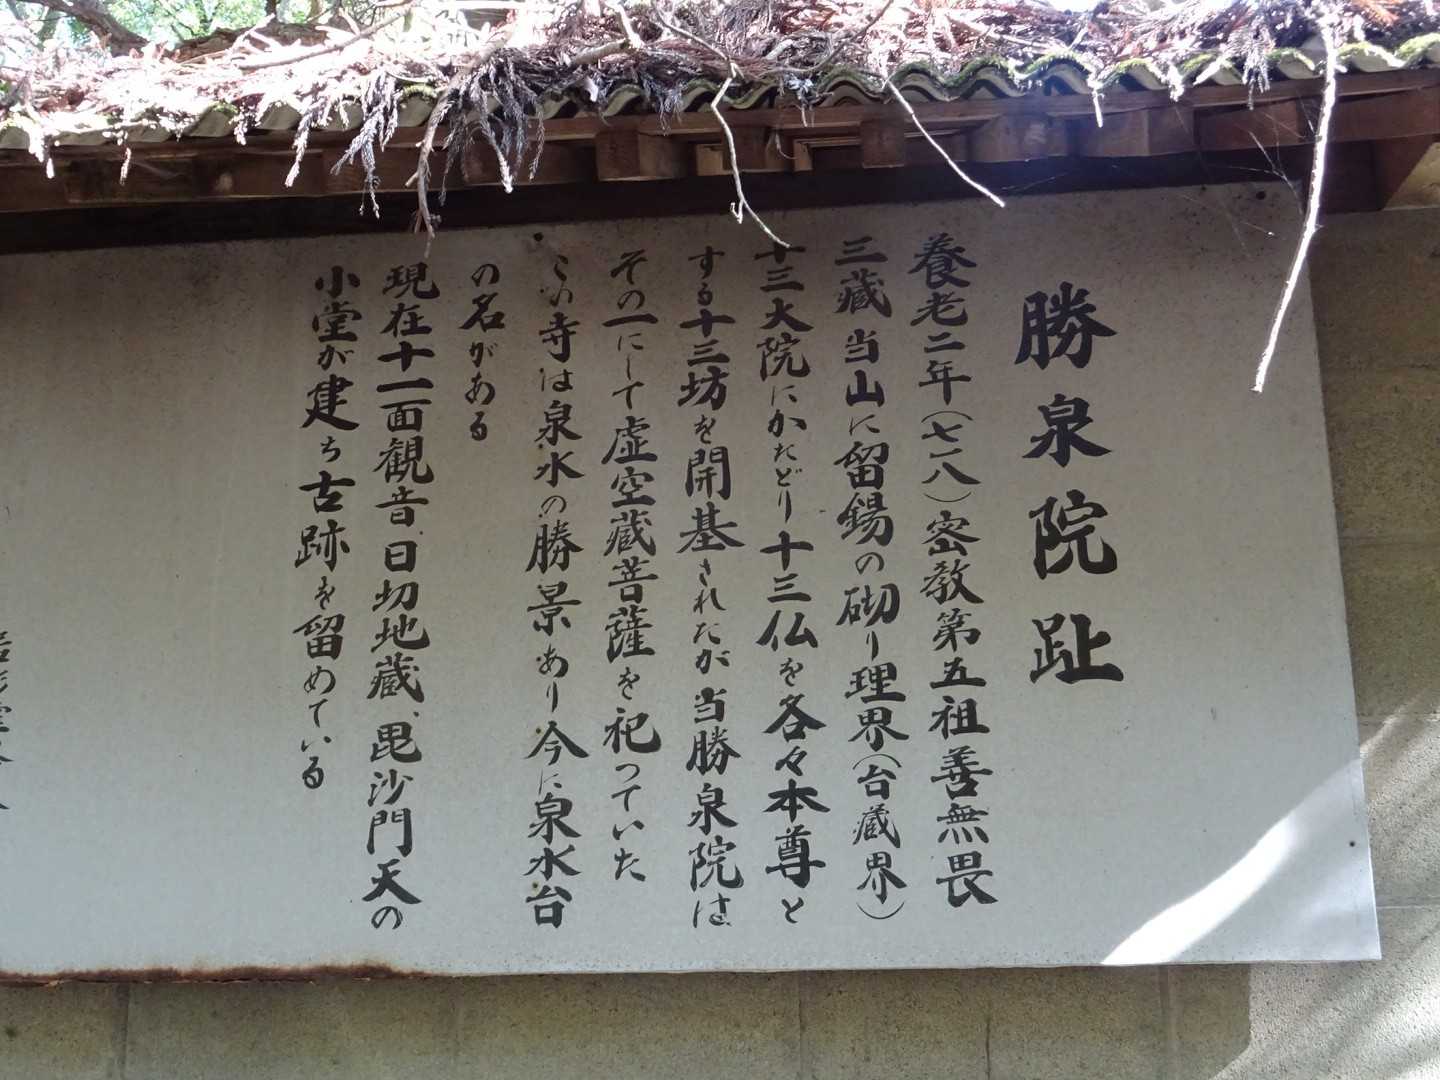 勝泉院趾
養老二年(七一八)密教第五祖善無畏
三蔵当山に留錫の砌り理界(台蔵界)
十三大院にかたどり十三仏を各々本尊と
する十三坊を開基されたが当勝泉院は
その一にして虚空蔵菩薩を祀っていた
この寺は泉水の勝景あり今に泉水台
の名がある
現在十一面観音、日切地蔵、毘沙門天の
小堂が建ち古跡を留めている